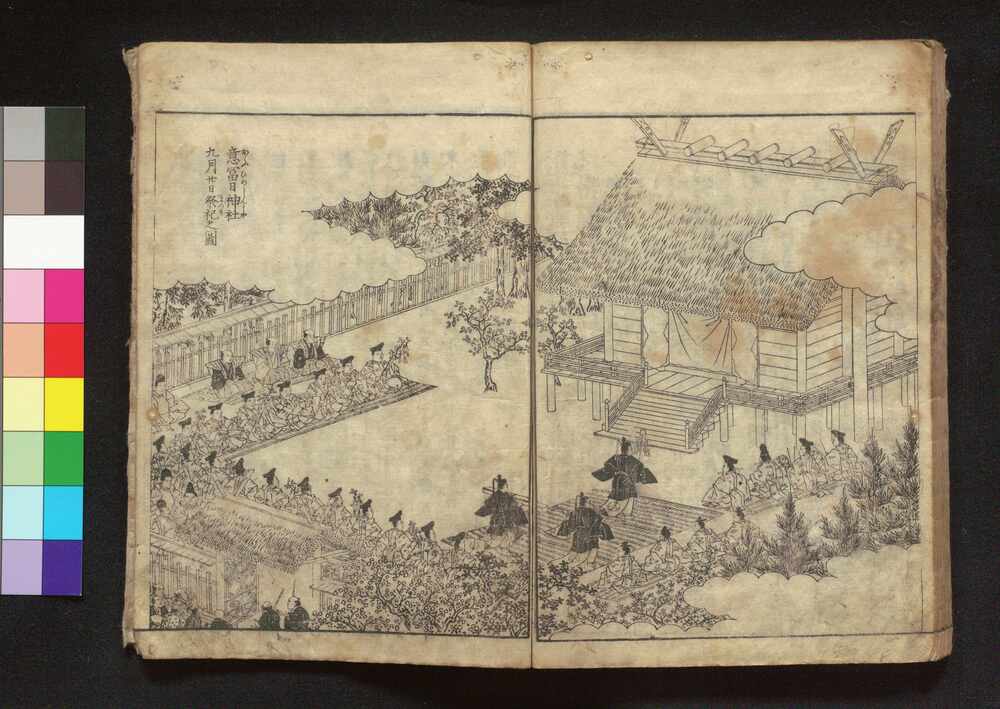 意冨日神社
九月廿日祭祀之圖